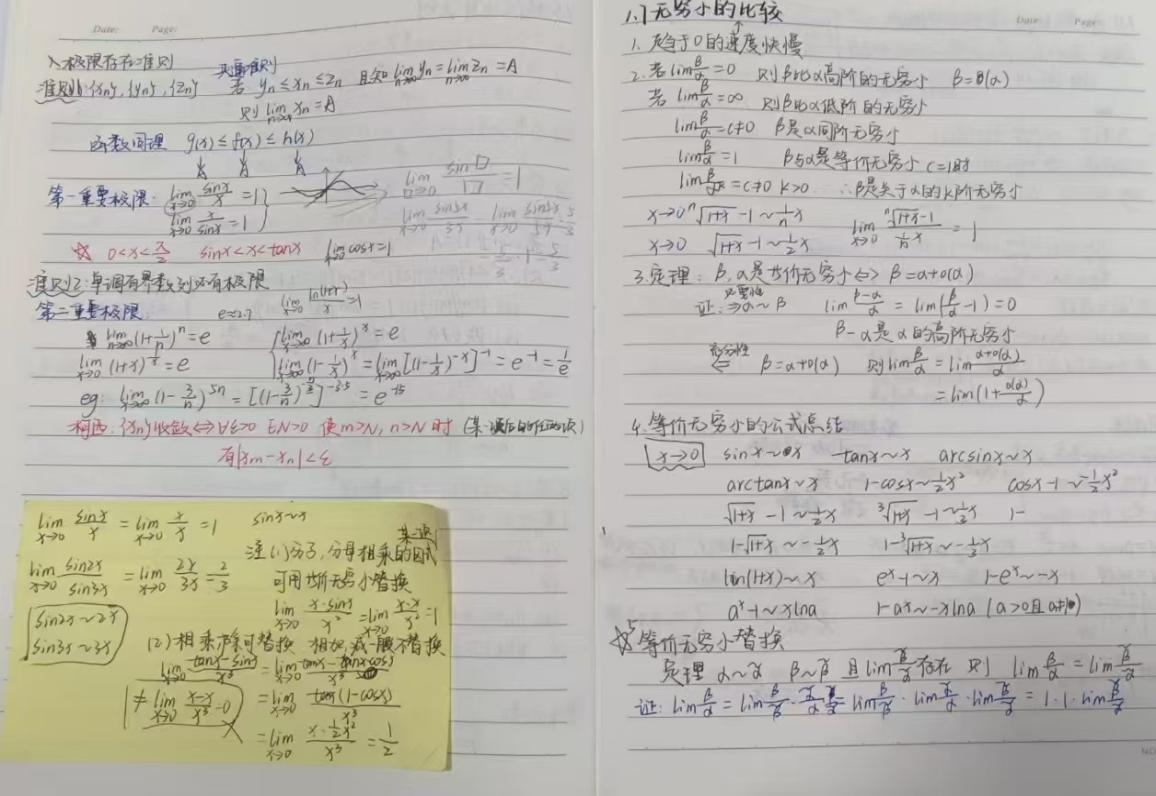 Date: Page:
极限存在准则
夹逼准则
准则1: {xn}, {yn}, {zn} 若 yn ≤ xn ≤ zn 且知 lim n→∞ yn = lim n→∞ zn = A
则 lim n→∞ xn = A
函数同理 g(x) ≤ f(x) ≤ h(x)
A A A
第一重要极限: lim x→0 sinx/x = 1 lim □→0 sin□/□ = 1
lim x→0 x/sinx = 1
☆ 0<x<π/2 sinx<x<tanx lim x→0 cosx=1
准则2: 单调有界数列必有极限
第二重要极限 e≈2.7 lim x→0 ln(1+x)/x = 1
lim n→∞ (1+1/n)^n = e lim x→∞ (1+1/x)^x = e
lim x→0 (1+x)^(1/x) = e lim x→∞ (1-1/x)^x = lim x→∞ [(1-1/x)^(-x)]^(-1) = e^(-1) = 1/e
eg: lim n→∞ (1-3/n)^(5n) = [(1-3/n)^(-n/3)]^(-3·5) = e^(-15)
柯西: {xn}收敛 ⇔ ∀ε>0 ∃N>0 使m>N, n>N时
有|xm-xn|<ε
lim x→0 sinx/x = lim x→0 x/x = 1 sinx~x
lim x→0 sin2x/sin3x = lim x→0 2x/3x = 2/3
sin2x~2x
sin3x~3x
某一项
注(1)分子,分母相乘的因式
可用等价无穷小替换
lim x→0 x·sinx/x² = lim x→0 x·x/x² = 1
(2)相乘除可替换 相加,减一般不替换
lim x→0 (tanx-sinx)/x³ = lim x→0 (tanx-tanxcosx)/x³
≠ lim x→0 (x-x)/x³ = 0 = lim x→0 tanx(1-cosx)/x³
= lim x→0 (x·½x²)/x³ = 1/2
Date: Page:
1.7 无穷小的比较
1. 趋于0的速度快慢
2. 若lim β/α = 0 则β比α高阶的无穷小 β=o(α)
若 lim β/α = ∞ 则β比α低阶的无穷小
lim β/α = c≠0 β是α同阶无穷小
lim β/α = 1 β与α是等价无穷小 c=1时
lim β/α^k = c≠0 k>0 ∴β是关于α的k阶无穷小
x→0 ⁿ√(1+x) - 1 ~ (1/n)x lim x→0 (ⁿ√(1+x) - 1)/((1/n)x) = 1
x→0 √(1+x) - 1 ~ ½x
3. 定理: β, α是等价无穷小 ⇔ β=α+o(α)
必要性
证: ⇒ α~β lim (β-α)/α = lim(β/α - 1) = 0
β-α是α的高阶无穷小
充分性
⇐ β=α+o(α) 则lim β/α = lim (α+o(α))/α
= lim(1+o(α)/α)
4. 等价无穷小的公式总结
x→0 sinx~x tanx~x arcsinx~x
arctanx~x 1-cosx~½x² cosx-1~-½x²
√(1+x) - 1~½x ³√(1+x) - 1~⅓x 1-
1-√(1+x) ~ -½x 1-³√(1+x) ~ -⅓x
ln(1+x)~x e^x-1~x 1-e^x~-x
a^x-1~xlna 1-a^x~-xlna (a>0且a≠1)
☆5 等价无穷小替换
定理 α~α̃ β~β̃ 且lim β̃/α̃ 存在 则 lim β/α = lim β̃/α̃
证: lim β/α = lim β/β̃ · β̃/α̃ · α̃/α = lim β/β̃ · lim α̃/α · lim β̃/α̃ = 1·1·lim β̃/α̃